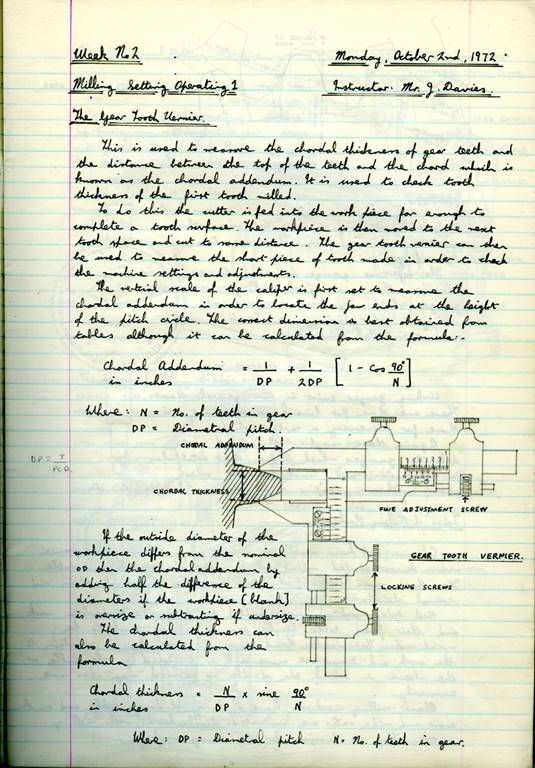 Week No 2
Monday, October 2nd, 1972.
Milling Setting Operating 1
Instructor: Mr. J. Davies.
The Gear Tooth Vernier.
This is used to measure the chordal thickness of gear teeth and
the distance between the top of the teeth and the chord which is
known as the chordal addendum. It is used to check tooth
thickness of the first tooth milled.
To do this the cutter is fed into the work piece far enough to
complete a tooth surface. The workpiece is then moved to the next
tooth space and cut to same distance. The gear tooth vernier can then
be used to measure the short piece of tooth made in order to check
the machine settings and adjustments.
The vertical scale of the caliper is first set to measure the
chordal addendum in order to locate the jaw ends at the height
of the pitch circle. The correct dimension is best obtained from
tables although it can be calculated from the formula:-
Chordal Addendum = 1/DP + 1/2DP [1 - Cos 90°/N]
in inches
Where: N = No. of teeth in gear
DP = Diametral pitch.
DP = T/PCD.
CHODAL ADDENDUM
CHORDAL THICKNESS
FINE ADJUSTMENT SCREW
GEAR TOOTH VERNIER.
LOCKING SCREWS
If the outside diameter of the
workpiece differs from the nominal
OD then the chordal addendum by
adding half the difference of the
diameters if the workpiece [blank]
is oversize or subtracting if undersize.
The chordal thickness can
also be calculated from the
formula
Chordal thickness = N/DP x sine 90°/N
in inches
Where: DP = Diametral pitch N = No. of teeth in gear.